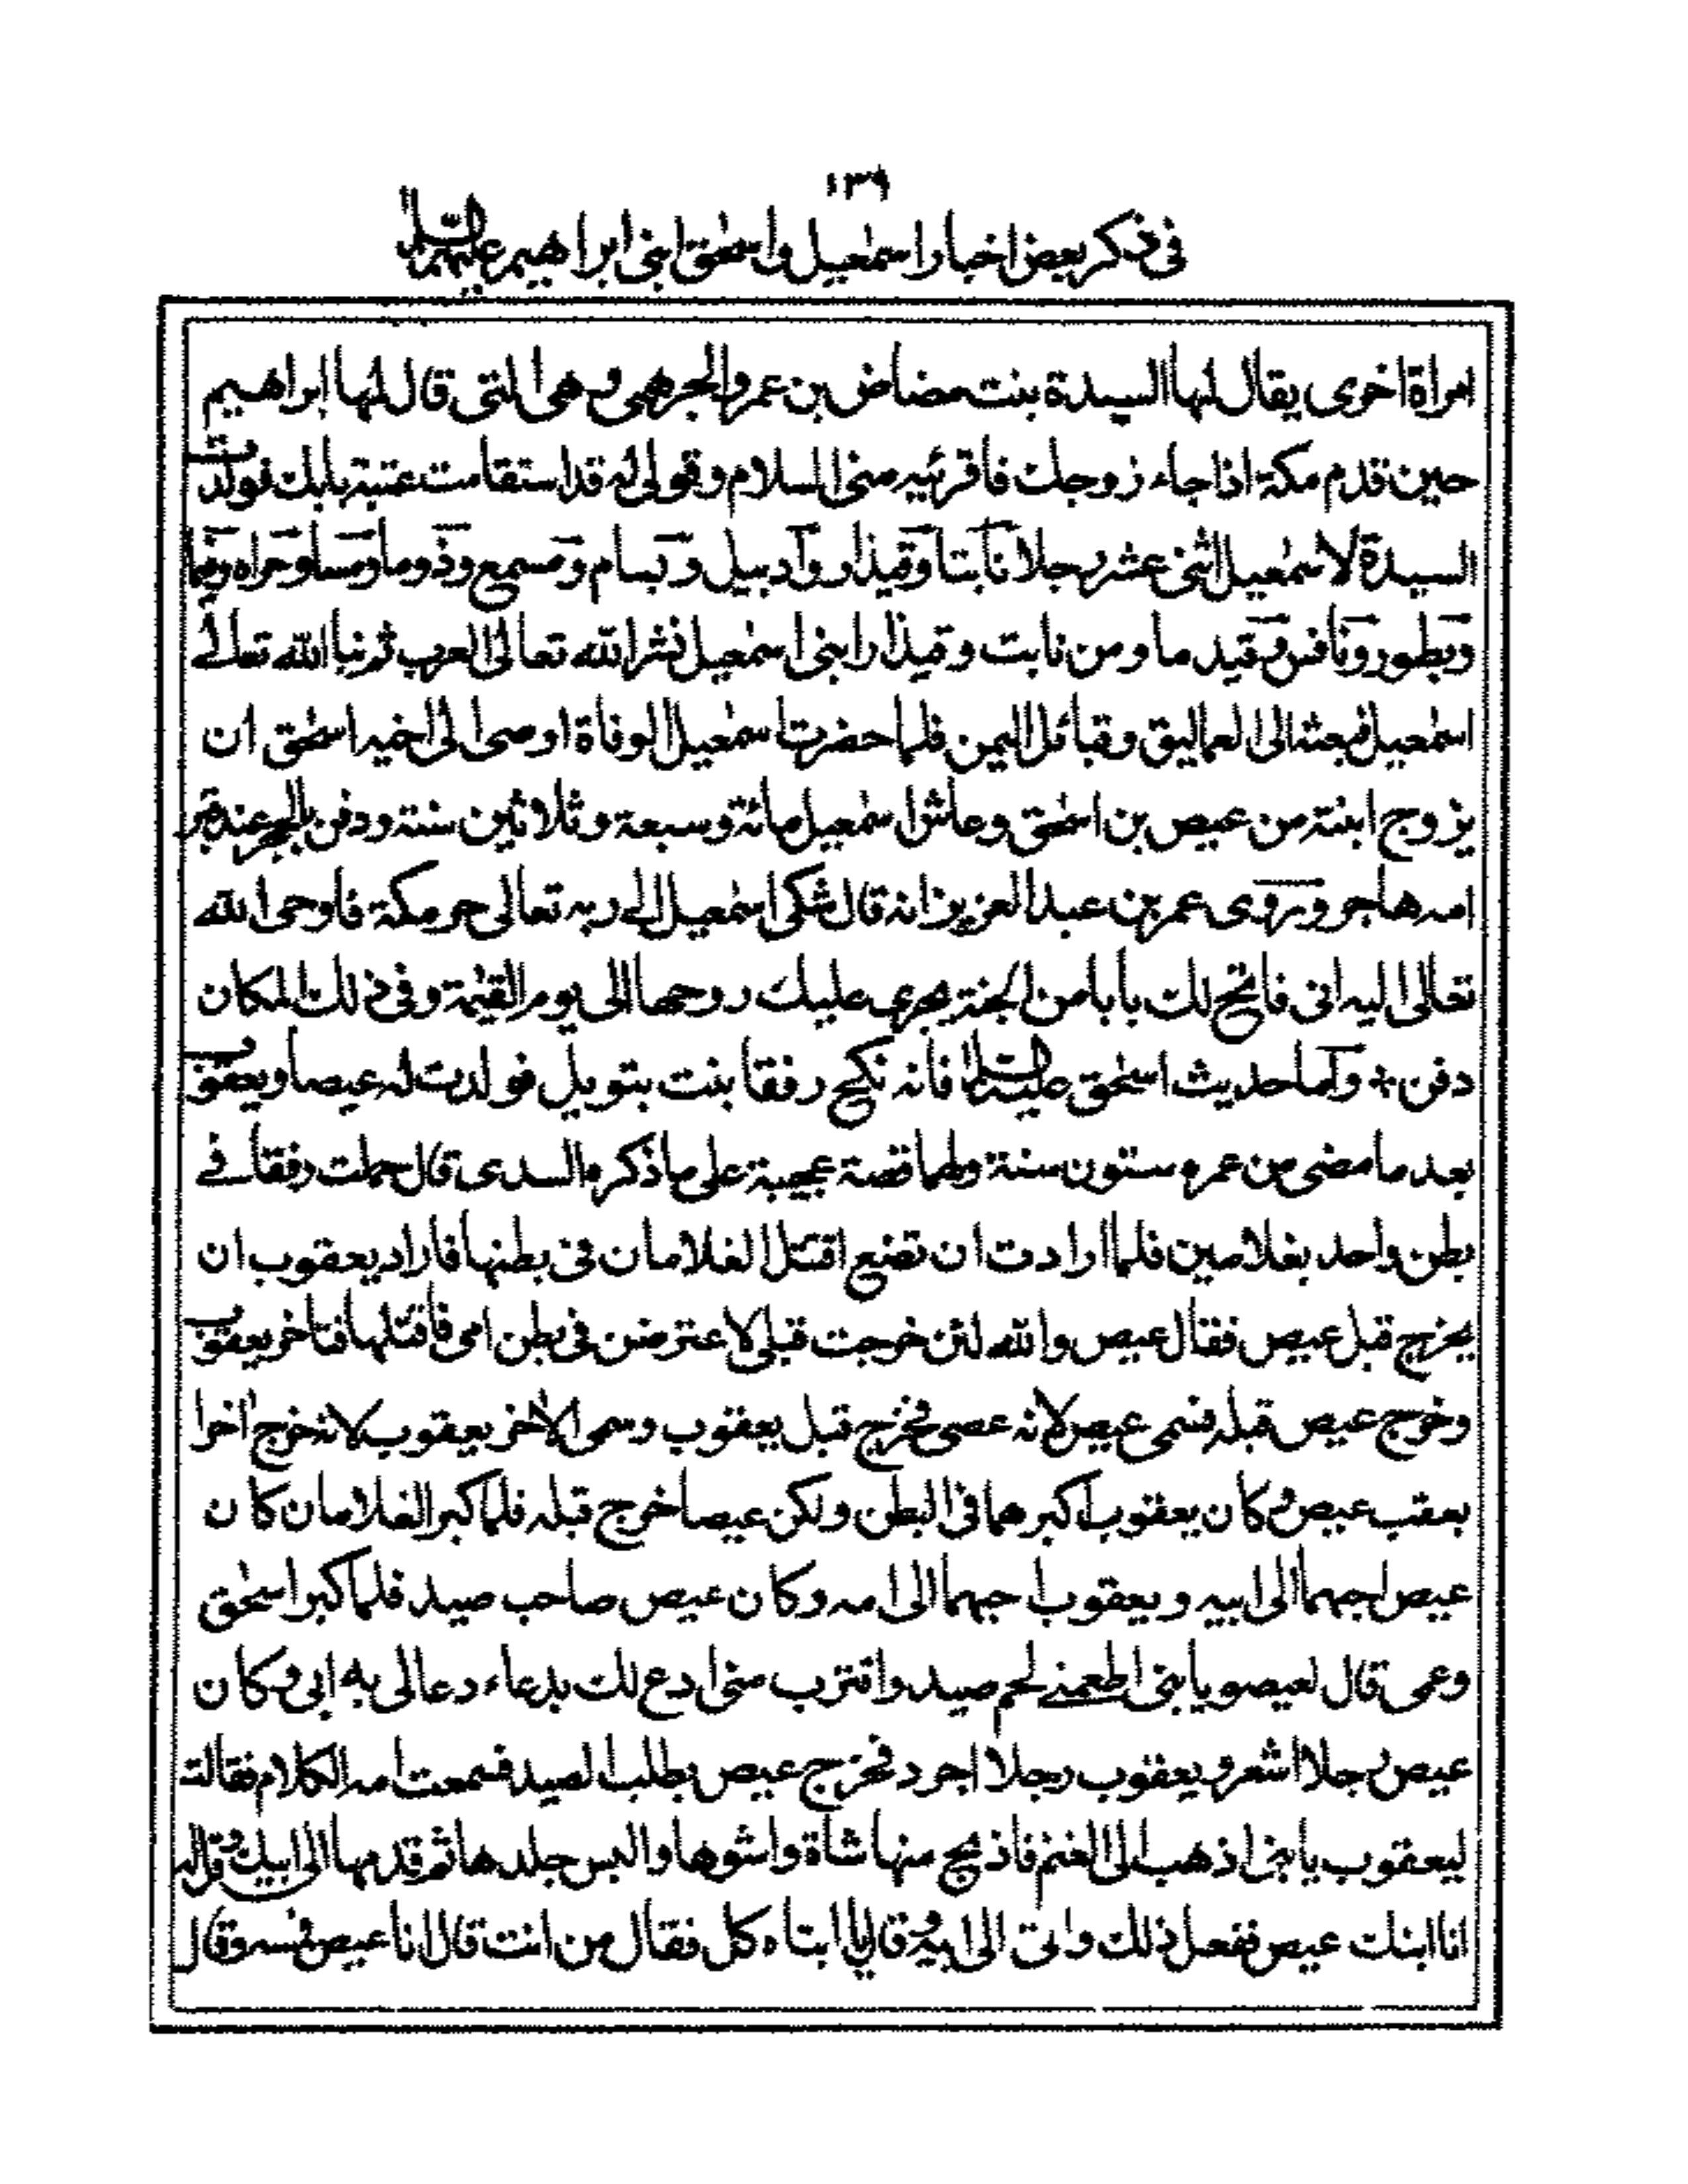 ١٣٩
في ذكر بعض اخبار اسمٰعيل واسحٰق ابنى ابراهيم عليهم السلام
امراة اخرى يقال لها السيدة بنت مضاض بن عمرو الجرهمى وهى التى قال لها ابراهيم
حين قدم مكة اذا جاء زوجك فاقرئيه منى السلام وقولى له قد استقامت عتبة بابك فولدت
السيدة لاسمٰعيل اثنى عشر رجلا نابتا وقيذار وادبيل وبسام ومسمع وذوما ومسا وحراه وقيما
وبطور ونافس وقيدما ومن نابت وقيذار ابنى اسمٰعيل نشر الله تعالى العرب ثم نبا الله تعالى
اسمٰعيل فبعثه الى العماليق وقبائل اليمن فلما حضرت اسمٰعيل الوفاة اوصى الى اخيه اسحٰق ان
يزوج ابنته من عيص بن اسحٰق وعاش اسمٰعيل مائة وسبعة وثلاثين سنة ودفن بالحجر عند قبر
امه هاجر وروى عمر بن عبد العزيز انه قال شكى اسمٰعيل الى ربه تعالى حر مكة فاوحى الله
تعالى اليه انى فاتح لك بابا من الجنة يجرى عليك روحها الى يوم القيٰمة وفى ذلك المكان
دفن * واما حديث اسحٰق عليه السلام فانه نكح رفقا بنت بتويل فولدت له عيصا ويعقوب
بعد ما مضى من عمره ستون سنة ولهما قصة عجيبة على ما ذكره السدى قال حملت رفقا فى
بطن واحد بغلامين فلما ارادت ان تضع اقتتل الغلامان فى بطنها فاراد يعقوب ان
يخرج قبل عيص فقال عيص والله لئن خرجت قبلى لاعترضن فى بطن امى فاقتلها فتاخر يعقوب
وخرج عيص قبله فسمى عيص لانه عصى فخرج قبل يعقوب وسمى الاخر يعقوب لانه خرج اخرا
بعقب عيص وكان يعقوب اكبرهما فى البطن ولكن عيصا خرج قبله فلما كبر الغلامان كان
عيص احبهما الى ابيه ويعقوب احبهما الى امه وكان عيص صاحب صيد فلما كبر اسحٰق
وعمى قال لعيصو يا بنى اطعمنى لحم صيد واقترب منى ادع لك بدعاء دعا لى به ابى وكان
عيص رجلا اشعر ويعقوب رجلا اجرد فخرج عيص يطلب الصيد فسمعت امه الكلام فقالت
ليعقوب يا بنى اذهب الى الغنم فاذبح منها شاة واشوها والبس جلدها ثم قدمها الى ابيك وقل له
انا ابنك عيص ففعل ذلك واتى الى ابيه وقال يا ابتاه كل فقال من انت قال انا عيص فمسه وقال